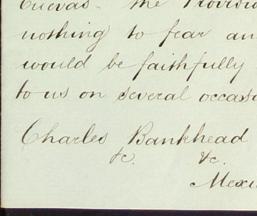 Cuevas. The Provisi
nothing to fear an
would be faithfully
to us on several occasi
Charles Bankhead
&c. &c.
Mexi